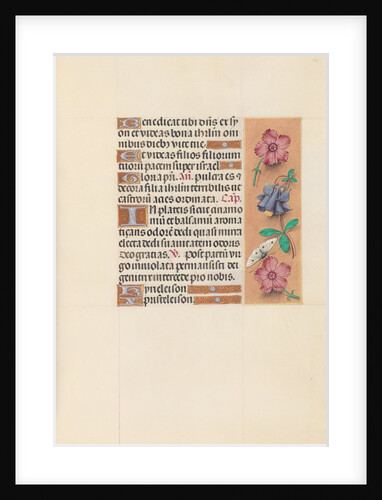 Benedicat tibi dñs ex sy
on et videas bona ihrlm om
nibus dieb vite tue.
Et videas filios filiorum
tuorum pacem super israel
Gloria pri. An. pulcra es
decora filia ihrlm terribilis ut
castrorū acies ordinata. Cap.
In plateis sicut cynamo
mū et balsamū aroma
tizans odorē dedi quasi mirra
electa dedi suavitatem odoris
Deo gratias. V. Post partū vir
go inviolata permansisti dei
genitrix intercede pro nobis.
Kyrieleison
Xpisteleison